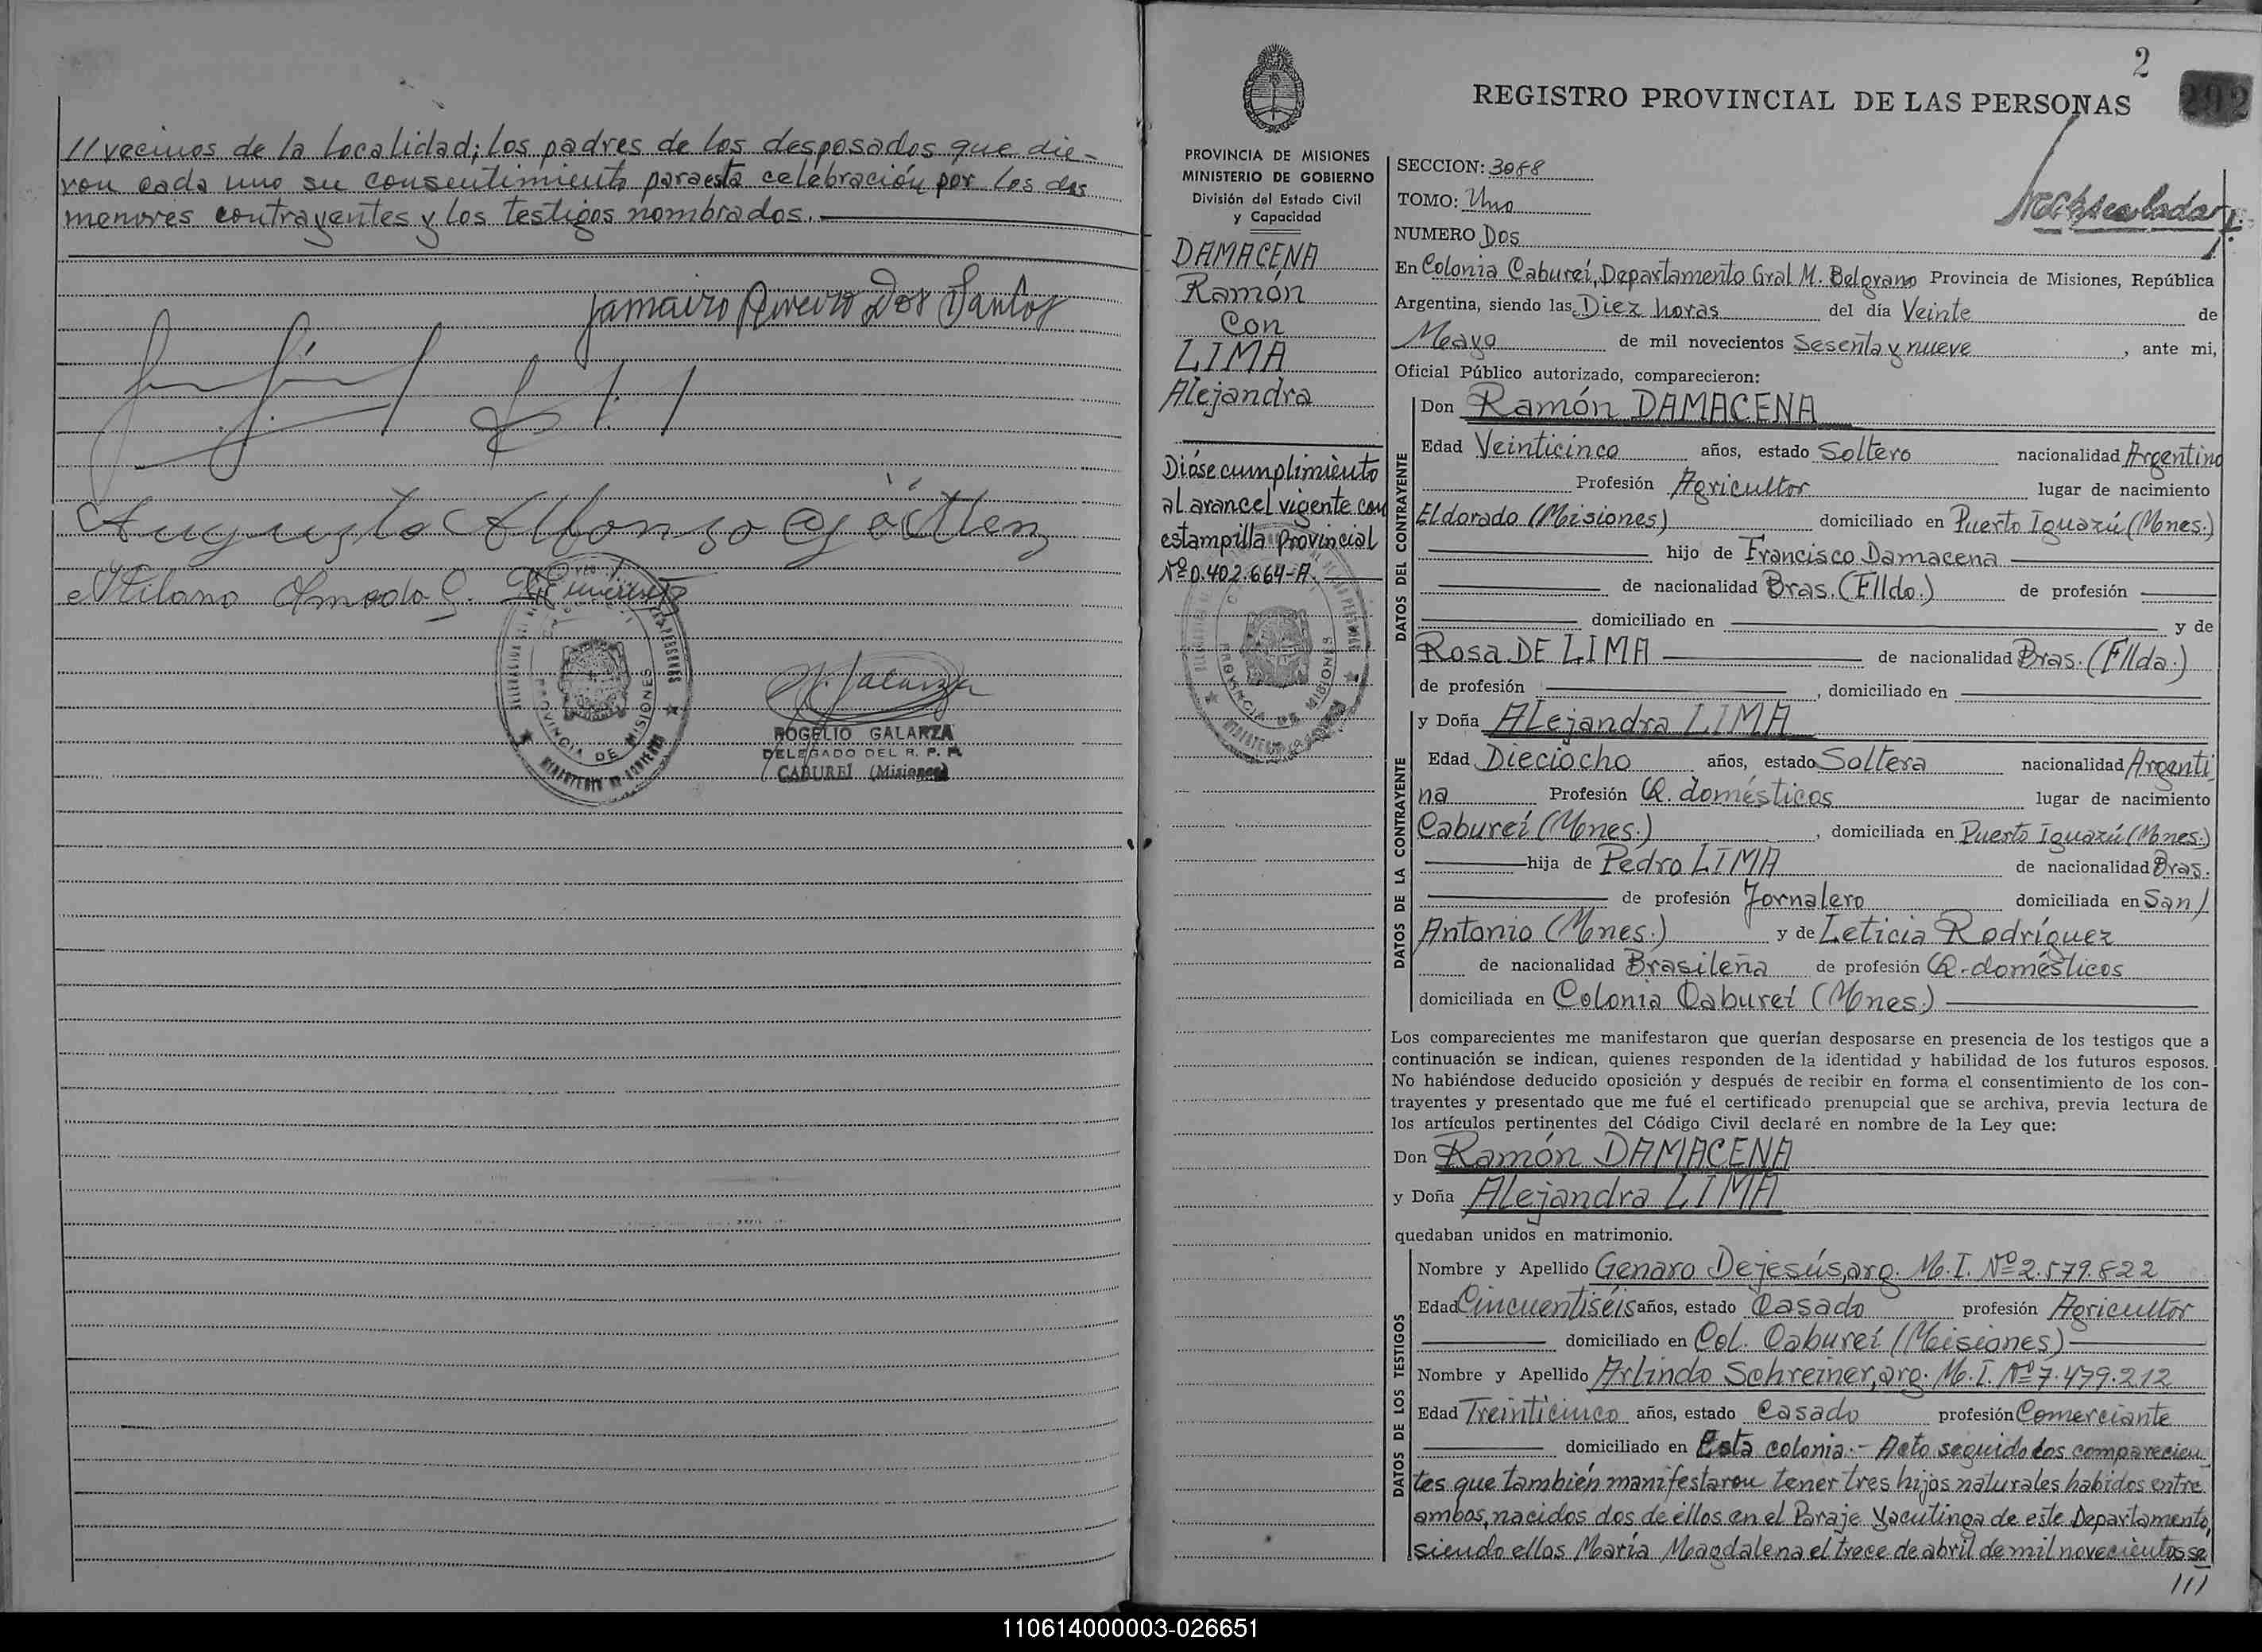 //vecinos de la localidad; los padres de los desposados que die-
ron cada uno su consentimiento para esta celebración por los dos
menores contrayentes y los testigos nombrados.
Dos Santos
Augusto Alfonso
Amado
PROVINCIA DE MISIONES
ROGELIO GALARZA
DELEGADO DEL R. P. P.
CABUREÍ (Misiones)
2
292
REGISTRO PROVINCIAL DE LAS PERSONAS
PROVINCIA DE MISIONES
MINISTERIO DE GOBIERNO
División del Estado Civil
y Capacidad
DAMACENA
Ramón
Con
LIMA
Alejandra
Dióse cumplimiento
al arancel vigente con
estampilla Provincial
Nº 0.402.664-A.
PROVINCIA DE MISIONES
SECCION: 3088
TOMO: Uno
NUMERO Dos
En Colonia Cabureí, Departamento Gral M. Belgrano Provincia de Misiones, República
Argentina, siendo las Diez horas del día Veinte de
Mayo de mil novecientos Sesenta y nueve, ante mi,
Oficial Público autorizado, comparecieron:
DATOS DEL CONTRAYENTE
Don Ramón DAMACENA
Edad Veinticinco años, estado Soltero nacionalidad Argentino
Profesión Agricultor lugar de nacimiento
Eldorado (Misiones) domiciliado en Puerto Iguazú (Mones.)
hijo de Francisco Damacena
de nacionalidad Bras. (Flldo.) de profesión
domiciliado en y de
Rosa DE LIMA de nacionalidad Bras. (Fllda.)
de profesión , domiciliado en
DATOS DE LA CONTRAYENTE
y Doña Alejandra LIMA
Edad Dieciocho años, estado Soltera nacionalidad Argenti
na Profesión Q. domésticos lugar de nacimiento
Cabureí (Mones.), domiciliada en Puerto Iguazú (Mones.)
hija de Pedro LIMA de nacionalidad Bras.
de profesión Jornalero domiciliada en San/
Antonio (Mones.) y de Leticia Rodríguez
de nacionalidad Brasileña de profesión Q. domésticos
domiciliada en Colonia Cabureí (Mones.)
Los comparecientes me manifestaron que querían desposarse en presencia de los testigos que a
continuación se indican, quienes responden de la identidad y habilidad de los futuros esposos.
No habiéndose deducido oposición y después de recibir en forma el consentimiento de los con-
trayentes y presentado que me fué el certificado prenupcial que se archiva, previa lectura de
los artículos pertinentes del Código Civil declaré en nombre de la Ley que:
Don Ramón DAMACENA
y Doña Alejandra LIMA
quedaban unidos en matrimonio.
DATOS DE LOS TESTIGOS
Nombre y Apellido Genaro Dejesús, arg. M.I. Nº 2.579.822
Edad Cincuentiséis años, estado Casado profesión Agricultor
domiciliado en Col. Cabureí (Misiones)
Nombre y Apellido Arlindo Schreiner, arg. M.I. Nº 7.479.212
Edad Treinticinco años, estado Casado profesión Comerciante
domiciliado en Esta colonia.- Acto seguido los comparecien
tes que también manifestaron tener tres hijos naturales habidos entre
ambos, nacidos dos de ellos en el Paraje Yacutinga de este Departamento,
siendo ellos María Magdalena el trece de abril de mil novecientos se
///
110614000003-026651